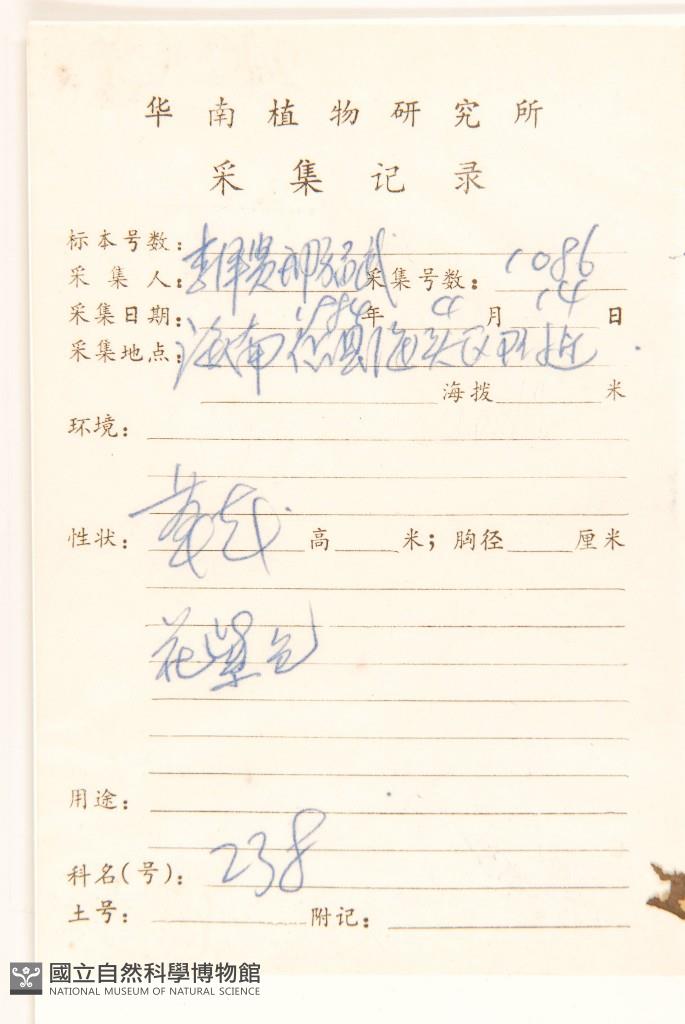 华南植物研究所
采集记录
标本号数：
采集人：李泽贤 采集号数：1086
采集日期：1984年4月14日
采集地点：海南 县海头区
海拨 米
环境：
性状： 高 米；胸径 厘米
花紫色
用途：
科名(号)：238
土号： 附记：
國立自然科學博物館
NATIONAL MUSEUM OF NATURAL SCIENCE